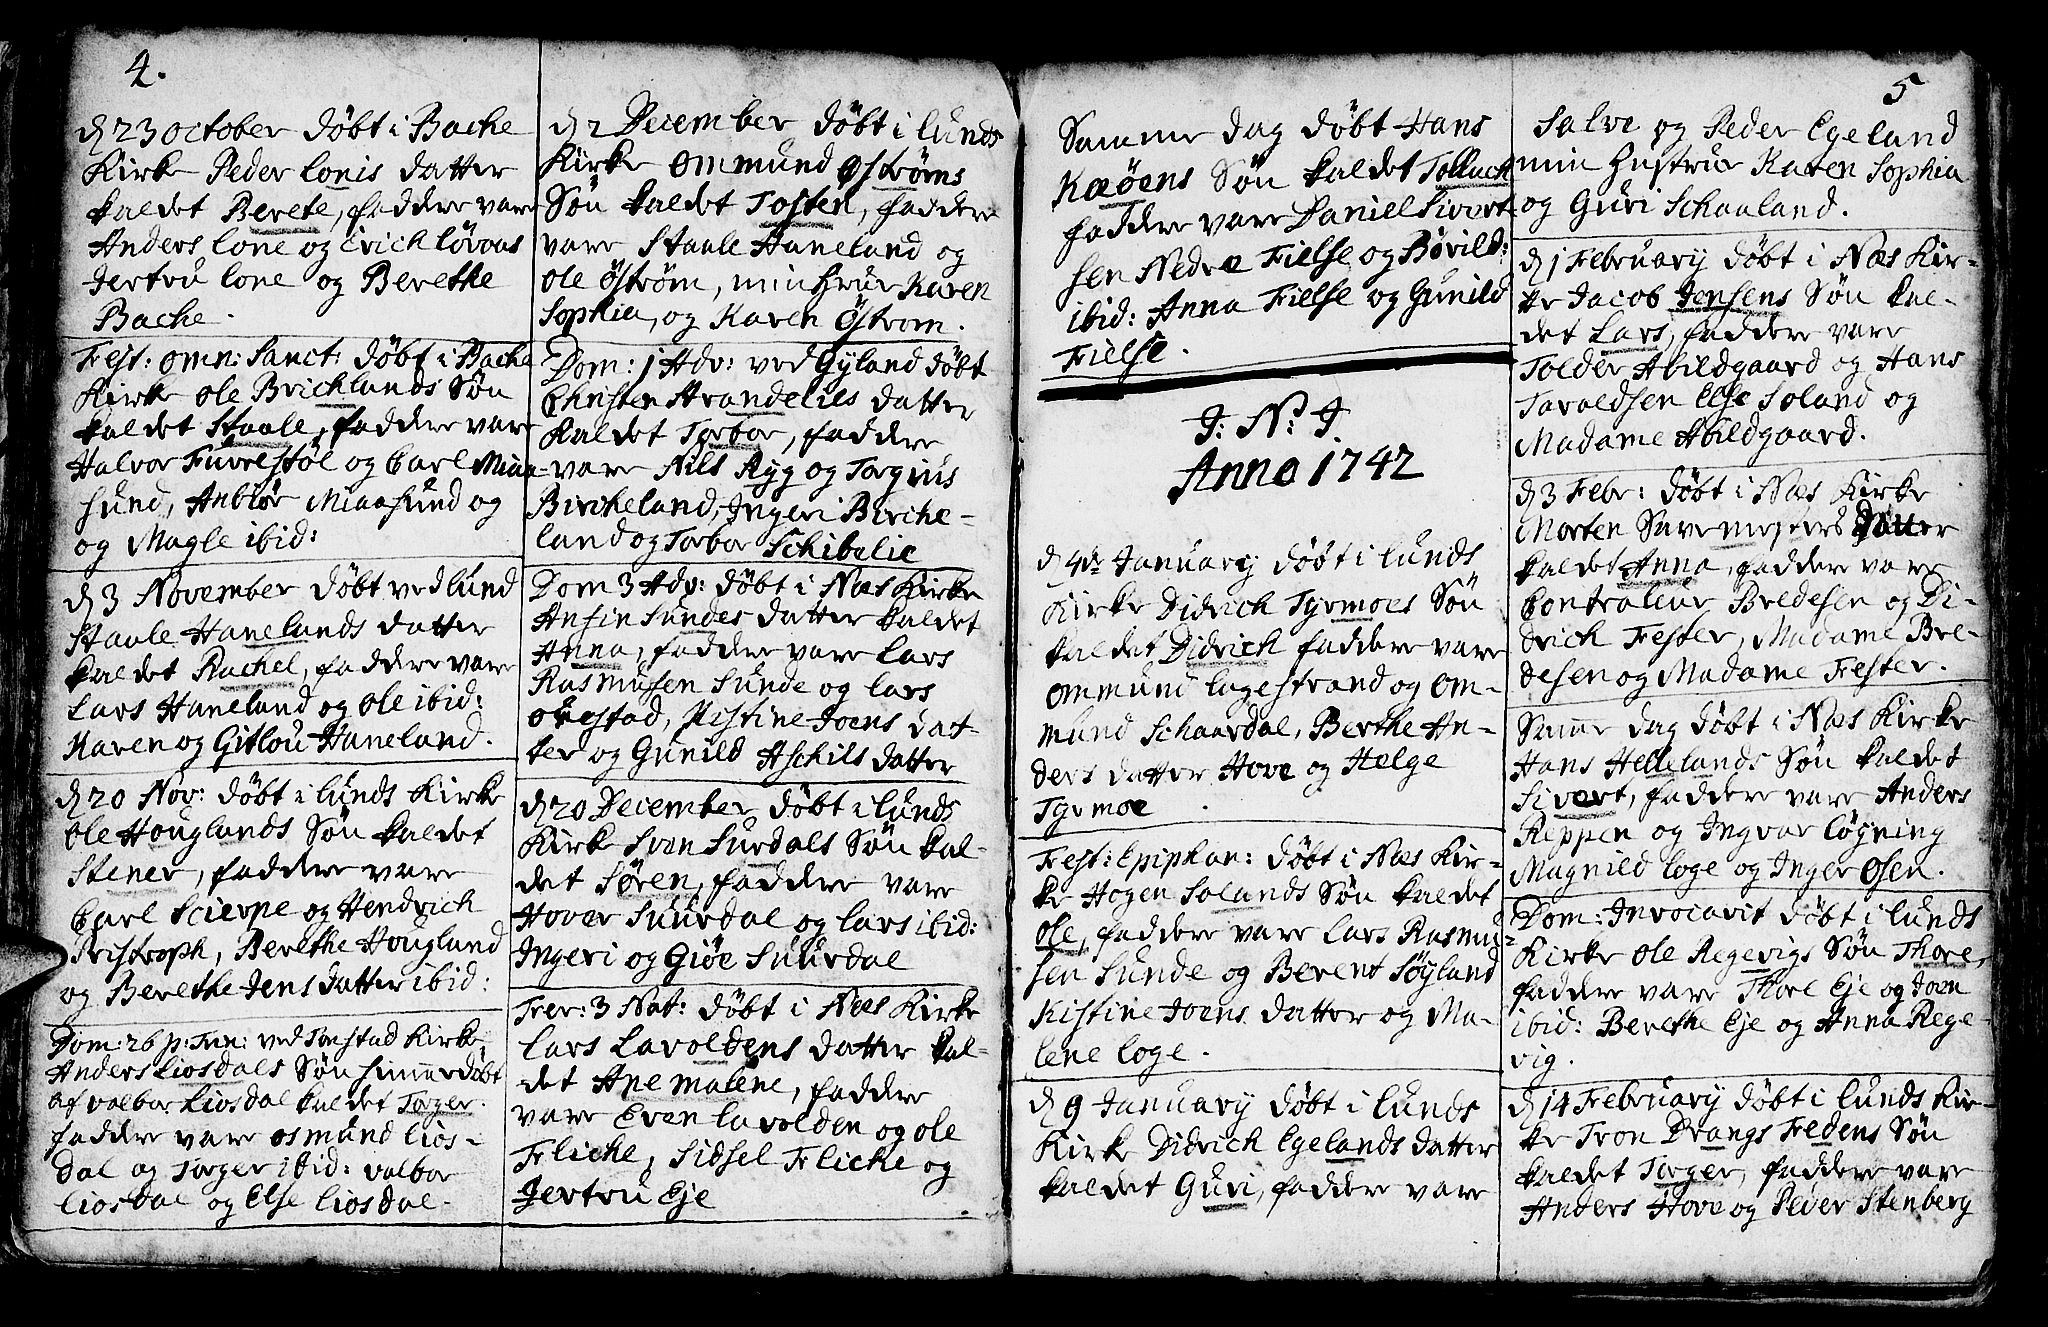 4.
d 23 October døbt i Bache
Kirke Peder Lonis datter
kaldet Berete, faddere vare
Anders lone og Erich løvaas
Jertru lone og Berethe
Bache.
Fest: omn: Sanct: døbt i Bache
Kirke Ole Brichlands Søn
kaldet Staale, faddere vare
Halvor Fuvrestøl og Carl Miaa-
sund, Anbiør Miaasund og
og Magle ibid:
d 3 November døbt ved lund
Staale Hanelands datter
kaldet Rachel, faddere vare
Lars Haneland og Ole ibid:
Karen og Gitlou Haneland.
d 20 Nov: døbt i lunds Kirke
Ole Houglands Søn kaldet
Stener, faddere vare
Carl Scierpe og Hendrich
Pristroph, Berethe Hougland
og Berethe Jens datter ibid:
Dom: 26 p: Trin: ved Tonstad Kirke
Anders Liosdals Søn himmerdøbt
af valbor Liosdal kaldet Torger.
faddere vare Osmund Lios-
dal og Torger ibid: valbor
Liosdal og Else Liosdal.
d 2 December døbt i lunds
Kirke Ommund Østrøms
Søn kaldet Tosten, faddere
vare Staale Haneland og
Ole Østrøm, min hrue Karen
Sophia, og Karen Østrom.
Dom: 1 Adv: ved Gyland døbt
Christen Strandelies datter
Kaldet Torbor, faddere
vare Nils Ryg og Torgius
Bircheland, Ingeri Birche-
land og Torbor Schibelie
Dom 3 Adv: døbt i Næs Kirke
Ansin Sundes datter kaldet
Anna, faddere vare Lars
Rasmusen Sunde og Lars
Ovestad, Kistine Joens dat-
ter og Gunild Aschils datter
d 20 December døbt i lunds
Kirke Sven Surdals Søn kal-
det Sören, faddere vare
Hover Suurdal og Lars ibid:
Ingeri og Giøe Suurdal
Fer: 3 Nat: døbt i Næs Kirke
Lars Lavoldens datter kal-
det Ane malene, faddere
vare Even Lavolden og Ole
Fliche, Sidsel Fliche og
Jertru Eje
5
Samme dag døbt Hans
Kæøens Søn kaldet Tollach
faddere vare Daniel Sivert-
sen Nedre Fielse og Børild:
ibid: Anna Fielse og Gunild
Fielse.
J: N: J.
Anno 1742
d 4de January døbt i lunds
Kirke Didrich Tyrmoes Søn
kaldet Didrich faddere vare
Ommund Lagestrand og Om-
mund Schaardal, Berthe An-
ders datter Hove og Helge
Tyrmoe.
Fest: Epiphan: døbt i Næs Kir-
ke Hogen Solands Søn kaldet
Ole, faddere vare Lars Rasmu-
sen Sunde og Berent Søyland
Kistine Joens datter og Ma-
lene Loge.
d 9 January døbt i lunds
Kirke Didrich Egelands datter
kaldet Guri, faddere vare
Salve og Peder Egeland
min Hustrue Karen Sophia
og Guri Schaaland.
d 1 February døbt i Næs Kir-
ke Jacob Jensens Søn kal-
det Lars, faddere vare
Tolder Abildgaard og Hans
Taraldsen Else Soland og
Madame Abildgaard.
d 3 Febr: døbt i Næs Kirke
Morten Savemesters datter
kaldet Anna, faddere vare
Contraleur Bredesen og Di-
drich Fester, Madame Bre-
desen og Madame Fester.
Samme dag døbt i Næs Kirke
Hans Hellelands Søn kaldet
Sivert, faddere vare Anders
Reppen og Ingvar Løgning
Magnild Loge og Inger Osen.
Dom: Invocavit døbt i lunds
Kirke Ole Regevigs Søn Thore,
faddere vare Thore Eje og Joen
ibid: Berethe Eje og Anna Rege-
vig.
d 14 February døbt i lunds Kir-
ke Tron Drangs Fedens Søn
kaldet Torger, faddere vare
Anders Hove og Peder Stenberg